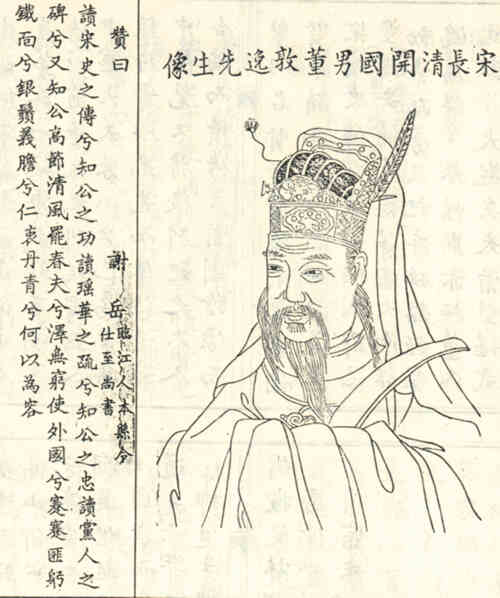 宋長清開國男董敦逸先生像
贊曰
謝岳臨江人本縣令
仕至尚書
讀宋史之傳兮知公之功讀瑶華之疏兮知公之忠讀黨人之
碑兮又知公高節清風罷春夫兮澤無窮使外國兮蹇蹇匪躬
鐵面兮銀鬚義膽兮仁衷丹青兮何以為容